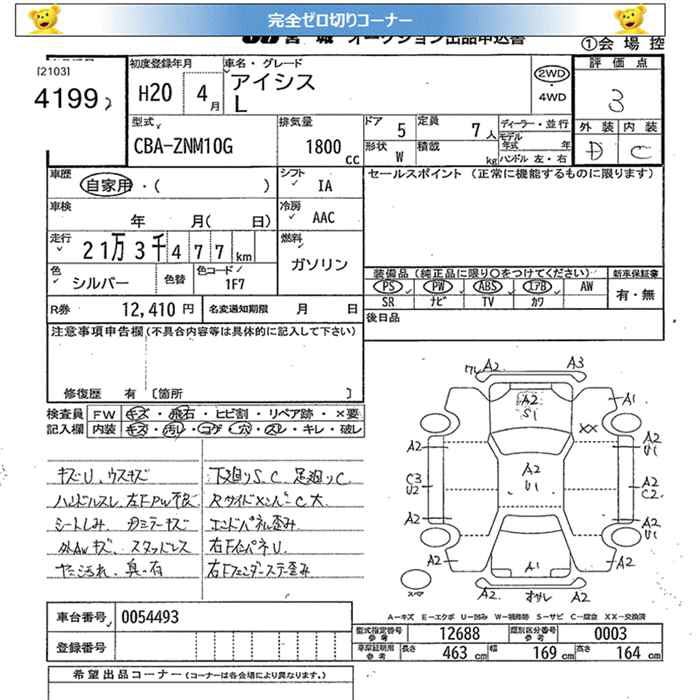 完全ゼロ切りコーナー
宮城 オークション出品申込書
①会場控
[2103]
4199
初度登録年月
H20 4月
車名・グレード
アイシス
L
2WD
4WD
評価点
3
外装 内装
D C
型式
CBA-ZNM10G
排気量
1800 cc
ドア 5
定員 7人
ディーラー・並行
モデル年式 年
形状 W
積載 kg
ハンドル 左・右
車歴
自家用・( )
シフト
IA
セールスポイント (正常に機能するものに限ります)
車検
年 月( 日)
冷房
AAC
走行
21万3千477km
燃料
ガソリン
色
シルバー
色替
色コード
1F7
装備品(純正品に限り○をつけてください)
新車保証書
PS PW ABS エアB AW
SR ナビ TV カワ
有・無
R券 12,410円
名変通知期限 月 日
後日品
注意事項申告欄(不具合内容等は具体的に記入して下さい)
修復歴 有 〔箇所 〕
検査員記入欄
FW キズ・飛石・ヒビ割・リペア跡・×要
内装 キズ・汚レ・コゲ・穴・スレ・キレ・破レ
キズU、ウスキズ
下廻りS、C、足廻りC
ハンドルスレ、左FPW不良
RサイドメンバーC大
シートしみ、
エンドパネル歪み
外AWキズ、スタッドレス
右FインパネU
ヤニ汚れ、
右Fフェンダーステー歪み
A2 A3
A2
S1
A1
XX
A2
A2
U1
A2
U1
C3
U2
A2
C2
A2
A2
U1
A2
A1
A2
スペア
A2 オサレ A2
A-キズ E-エクボ U-凹み W-補修跡 S-サビ C-腐食 XX-交換済
車台番号 0054493
登録番号
型式指定番号 参考 12688
類別区分番号 参考 0003
車庫証明用 参考 長さ 463 cm 幅 169 cm 高さ 164 cm
希望出品コーナー (コーナーは各会場により異なります。)